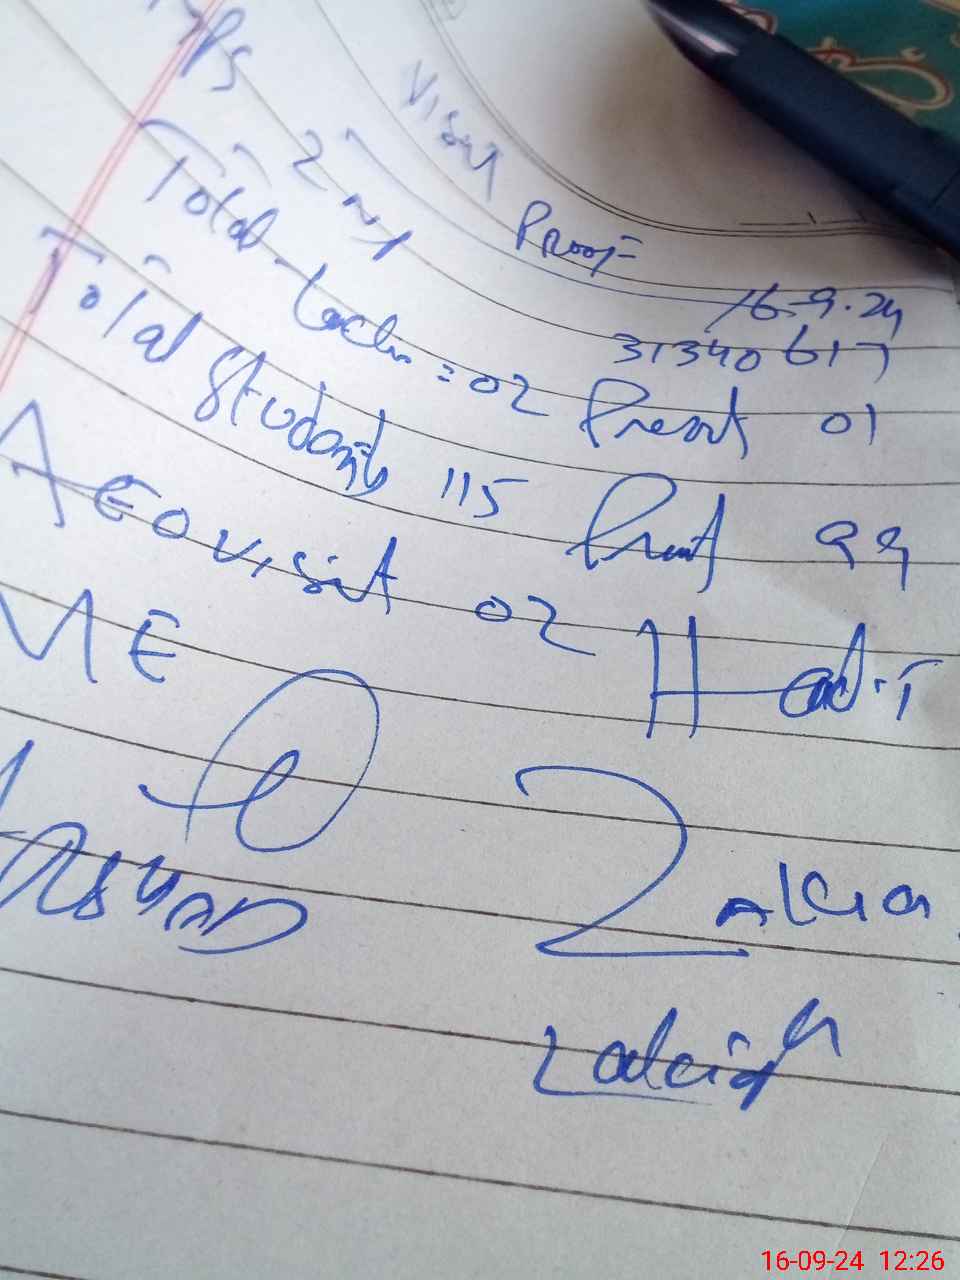 Visit Proof
GPS 2 M 16-9-24
31340617
Total Teach = 02 Present 01
Total Students 115 Present 99
AEO visit 02
ME Head-T
ARSHAD Zakia
Zakia
16-09-24 12:26